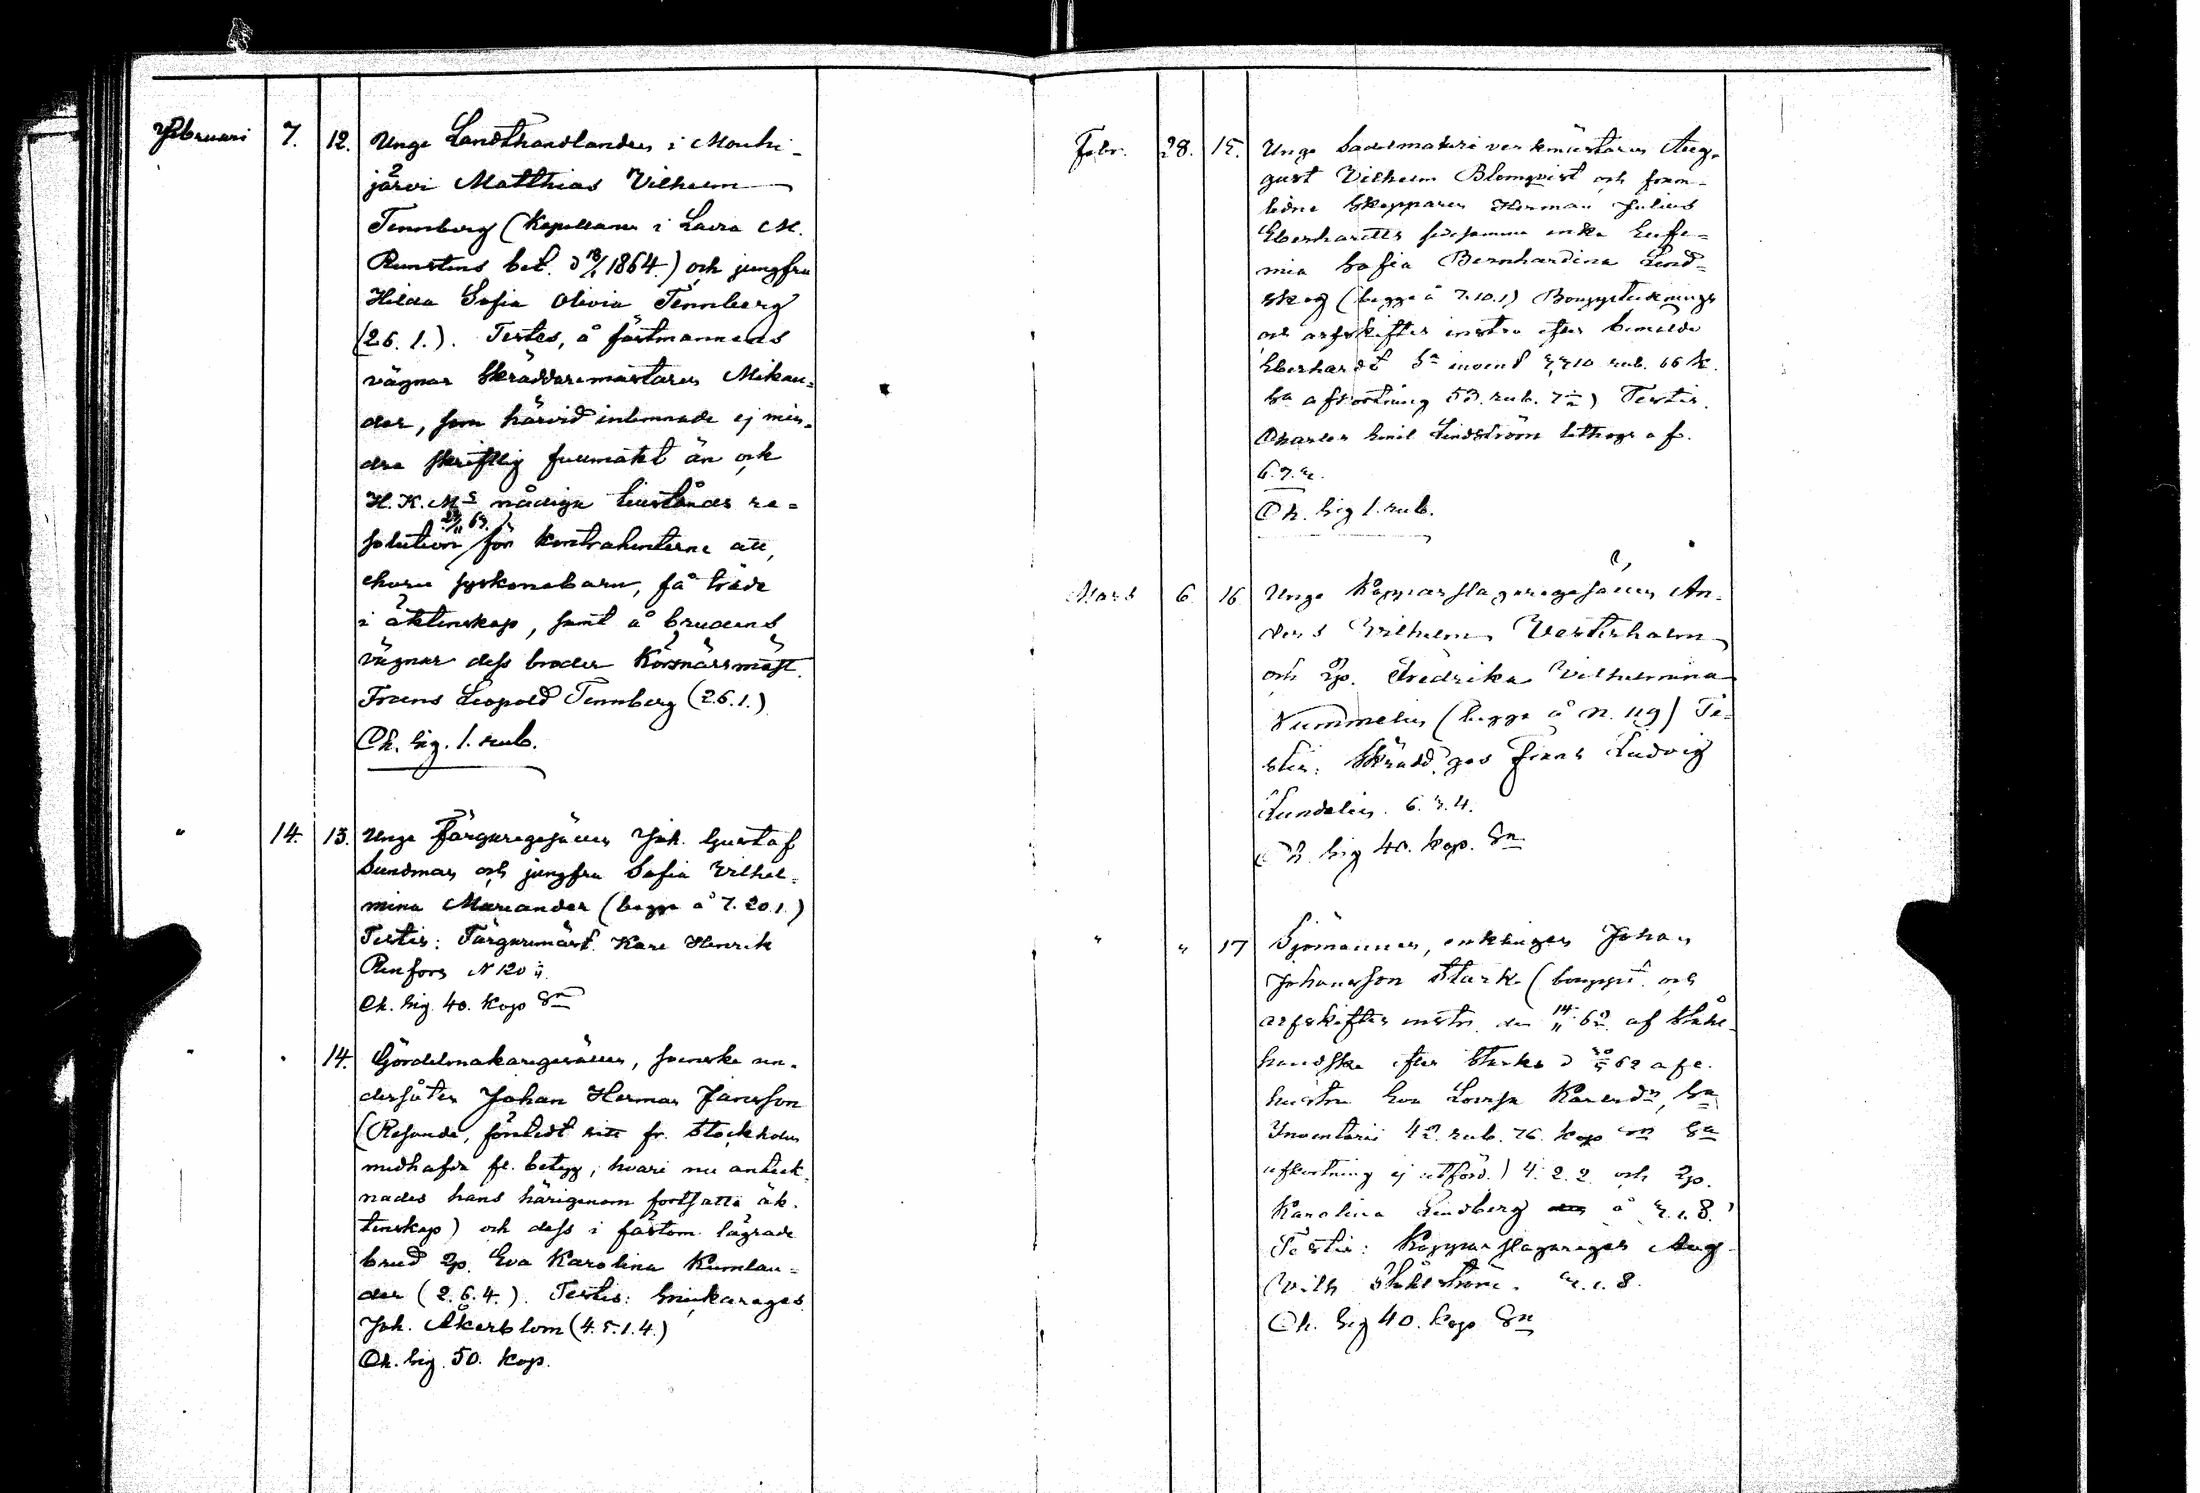 Februari 7. 12. Unge Landthandlanden i Mouhi-
järvi Matthias Vilhelm
Tennberg (Kapellanen i Lavia M.
Runstens bet. d 18/1 1864.) och jungfru
Hilda Sofia Olivia Tennberg
(26. 1.). Testes, å fästmannens
vägnar Skräddaremästaren Mikan-
der, som härvid inlemnade ej min-
dre skriftlig fullmakt än ock
H. K. M:s nådiga tillstånds re-
solution för kontrahenterne att,
ehuru syskonebarn, få träda
i äktenskap, samt å brudens
vägnar dess broder Körsnärsmäst.
Frans Leopold Tennberg (26.1.)
Ch. Sig. 1. rub.
" 14. 13. Unge Färgaregesällen Joh. Gustaf
Sundman och jungfru Sofia Vilhel-
mina Mariander (begge å 7. 20.1.)
Testis: Färgaremäst. Karl Henrik
Renfors N 120
Ch. Sig. 40. Kop Sr
" " 14. Gördelmakaregesällen, svenske un-
dersåten Johan Herman Jansson
(Resande, företedt sitt fr. Stockholm
medhafda fl. betyg, hvari nu anteck-
nades hans härigenom fortsatta äk-
tenskap) och dess i fästom. lägrade
brud Pp. Eva Karolina Kumlan-
der (2.6.4.). Testis: Snickareges.
Joh. Åkerblom (4.5.1.4.)
Ch. Sig. 50. Kop.
Febr. 28. 15. Unge Sadelmakeri verkmästaren Aug-
gust Vilhelm Blomqvist och fram-
lidne Skepparen Herman Julius
Eberhardts enka Eufe-
mia Sofia Bernhardina Lind-
skog (begge å 7.10.1) Bouppteckning
och arfskiftes instr. efter bemälde
Eberhardt Sa invent 710 rub. 66 k.
Sa afkortning 53. rub. 7) Testis.
Charles Emil Lindström lithogr af.
6.7.
Ch. Sig 1. rub.
Mars 6. 16 Unge Kopparslagaregesällen An-
ders Vilhelm Vesterholm
och Pp. Fredrika Vilhelmina
Nummelin (begge å N. 119) Te-
stis: Skrädd. ges Frans Ludvig
Lundelin. 6. 3. 4.
Ch. Sig 40. Kop. Sr
" " 17 Sjömannen, enklingen Johan
Johansson Stark (bouppt. och
arfskiftes instr. den 14/11 62 af Stål-
handske efter Starks d 62 afl.
hustru Eva Lovisa Karlsdr, Sa
Inventarii 42. rub. 76. kop Sa
afkortning ej utförd.) 4. 2. 2. och Pp.
Karolina Lindberg å 2.1.8.)
Testis: Kopparslagareges Aug.
Vilh Ståhlström. 2.1.8.
Ch. Sig 40. Kop Sr